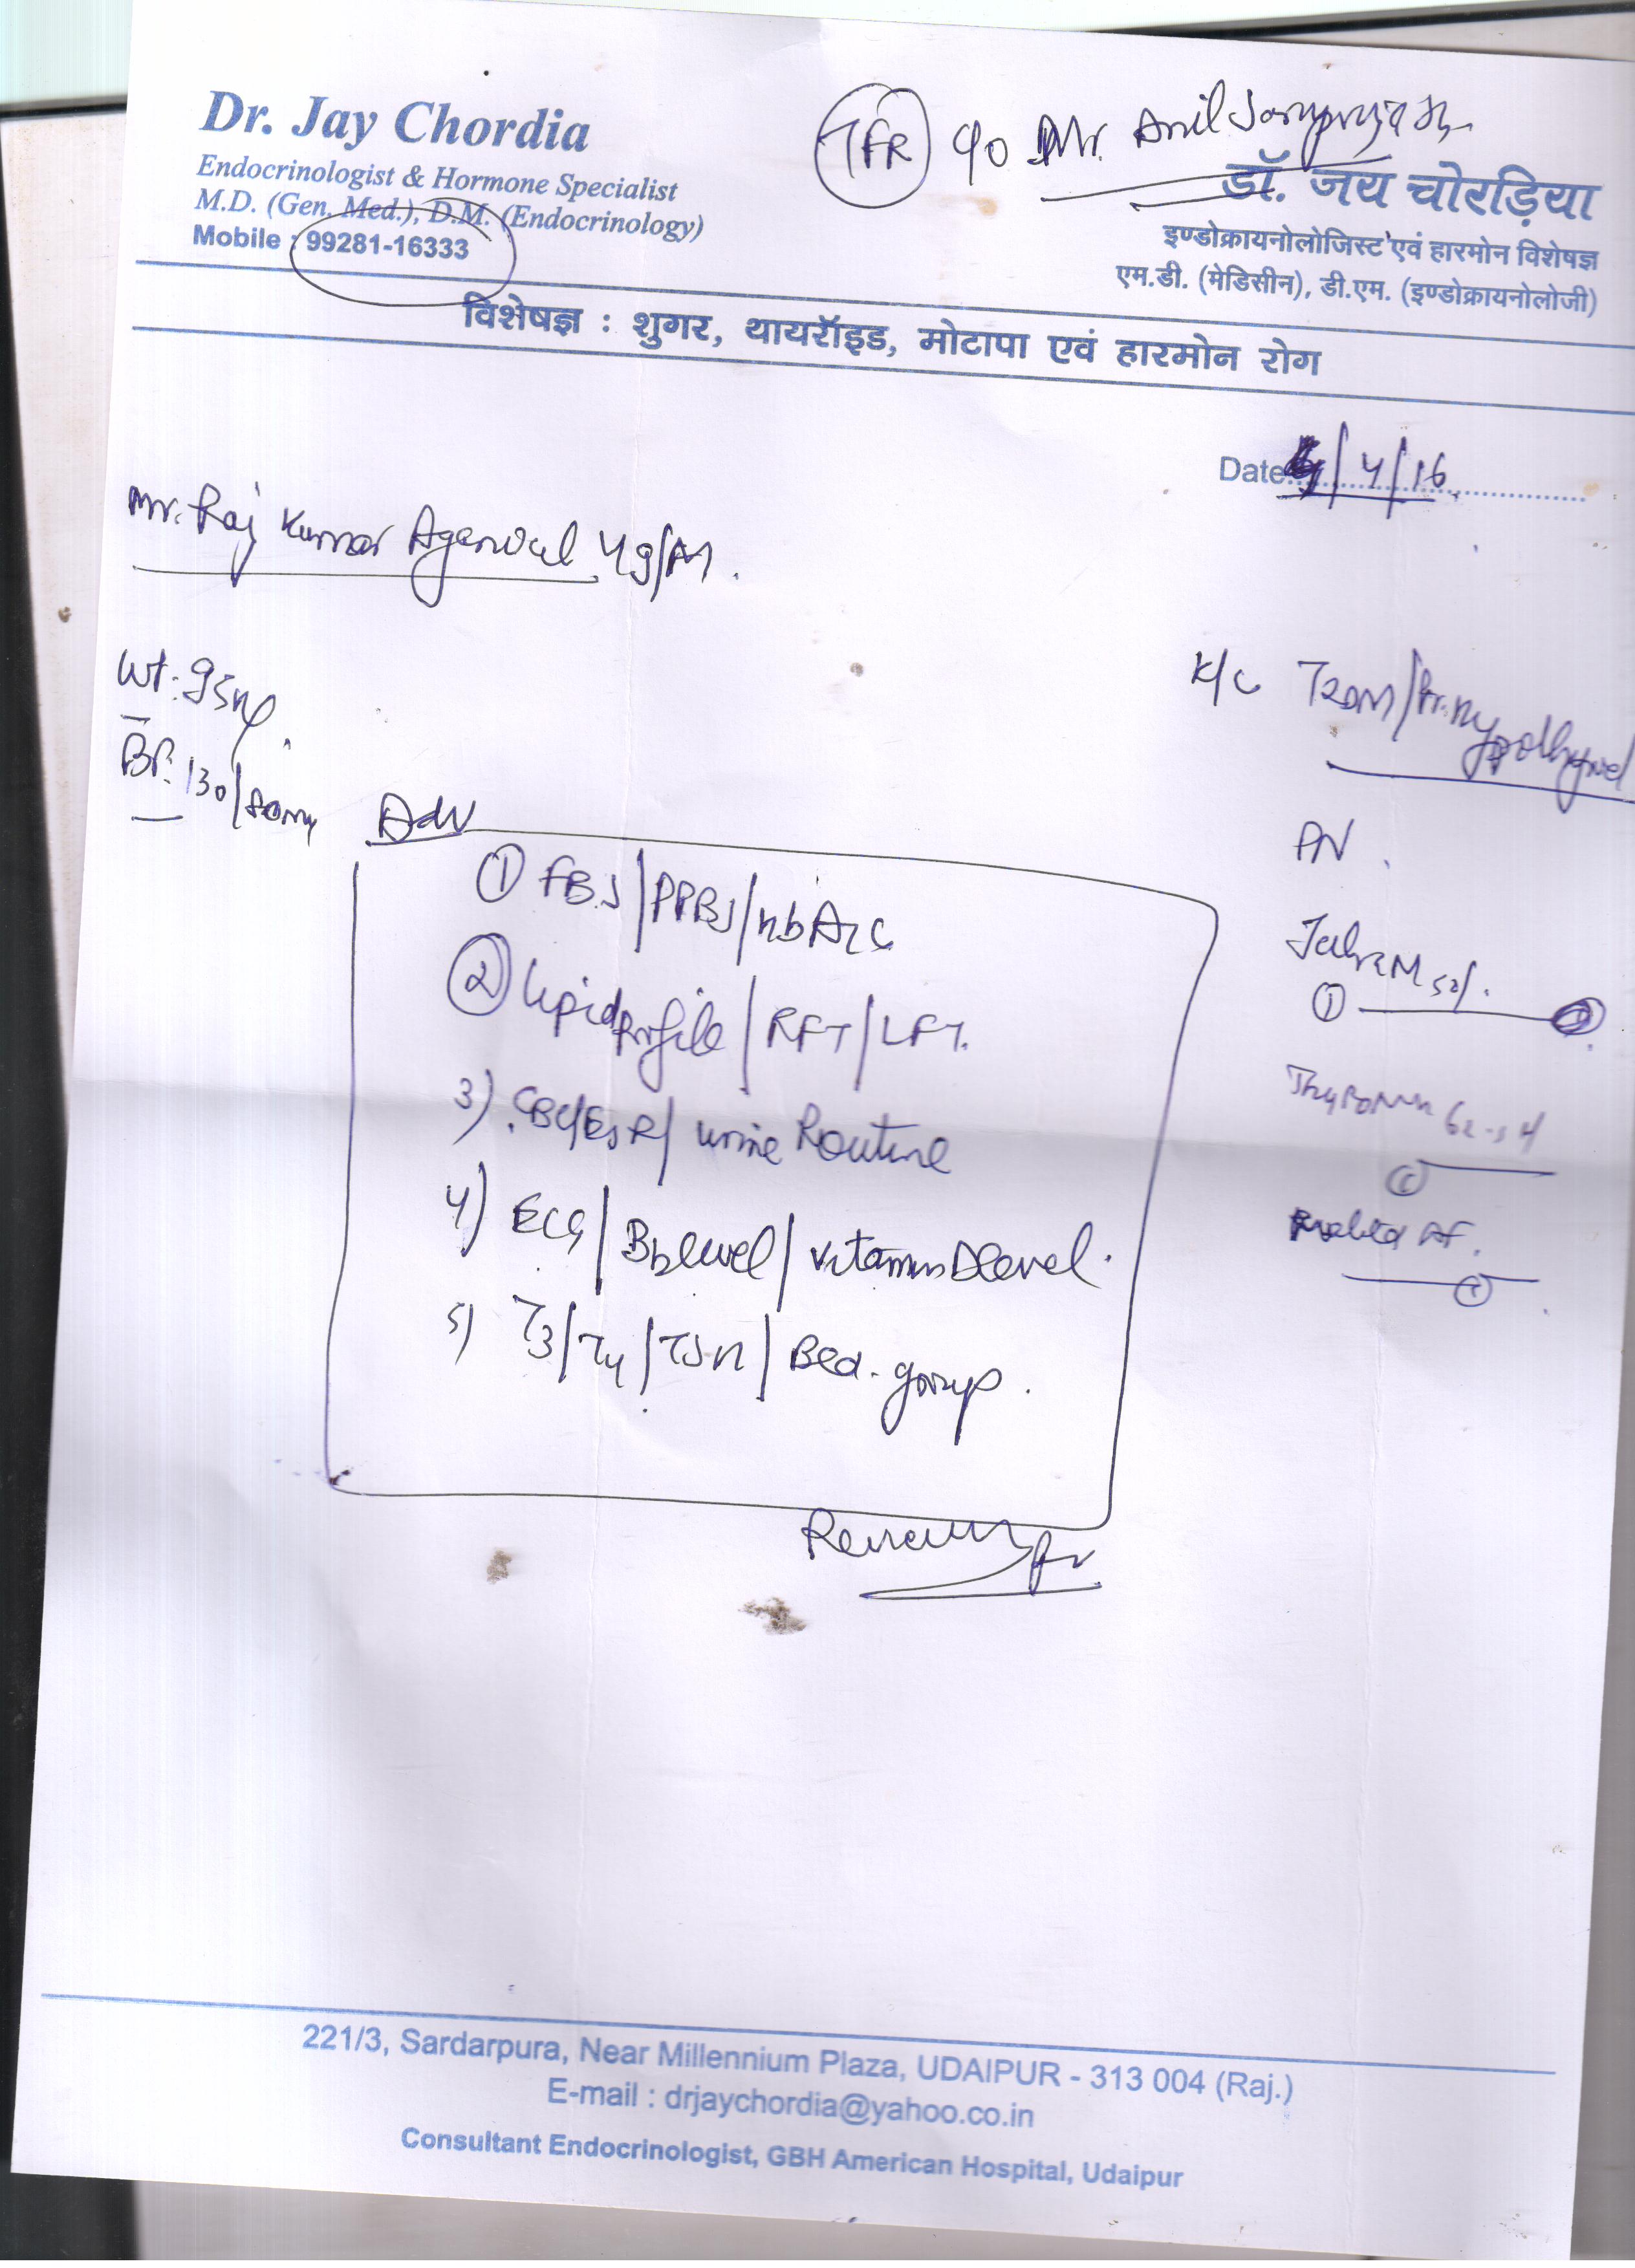 Dr. Jay Chordia
Endocrinologist & Hormone Specialist
M.D. (Gen. Med.), D.M. (Endocrinology)
Mobile : 99281-16333
TFR C/o Mr. Anil
डॉ. जय चोरड़िया
इण्डोक्रायनोलोजिस्ट एवं हारमोन विशेषज्ञ
एम.डी. (मेडिसीन), डी.एम. (इण्डोक्रायनोलोजी)
विशेषज्ञ : शुगर, थायरॉइड, मोटापा एवं हारमोन रोग
Date /4/16
Mr. Raj Kumar Agarwal 49/M.
Wt: 95kg
BP: 130/80
K/C T2DM/Pr. Hypothy
Adv
① FBS/PPBS/HbA1c
② Lipid Profile/RFT/LFT.
3) CBC/ESR/Urine Routine
4) ECG/B12 level/Vitamin D level.
5) T3/T4/TSH/Bld. group.
Review
221/3, Sardarpura, Near Millennium Plaza, UDAIPUR - 313 004 (Raj.)
E-mail : drjaychordia@yahoo.co.in
Consultant Endocrinologist, GBH American Hospital, Udaipur